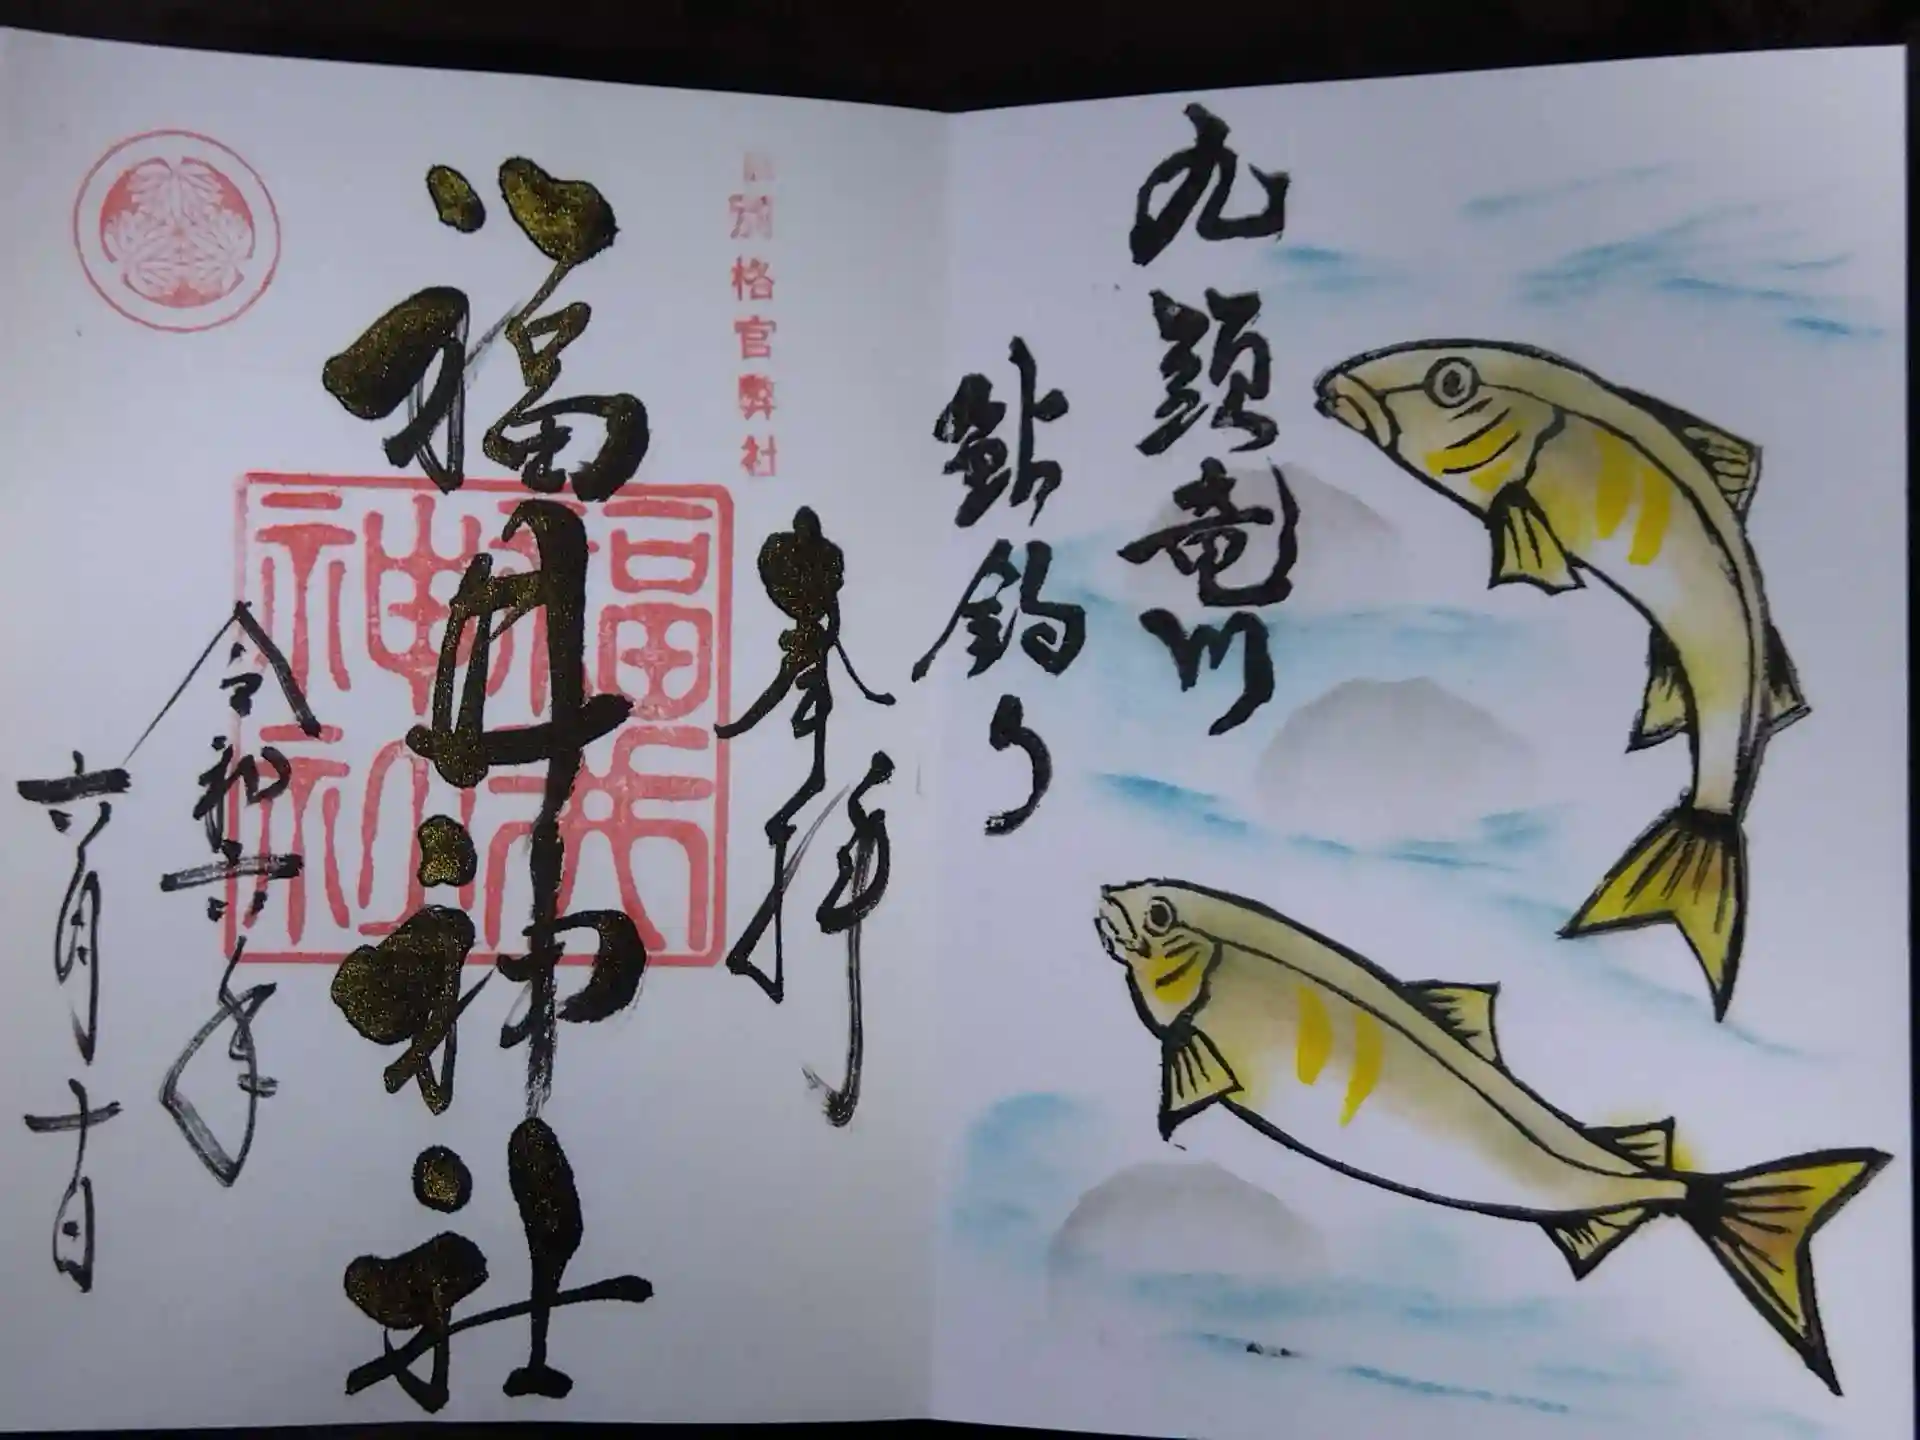 九頭竜川
鮎釣り
別格官弊社
奉拝
福井神社
福井神社
令和六年
六月十日